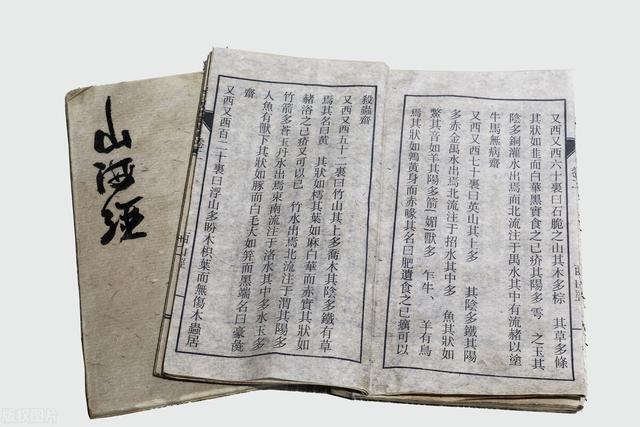 山海經
又西又西六十裏曰石脆之山其木多棕　其草多條
其狀如韭而白華黑實食之已疥其陽多　零　之玉其
陰多銅灌水出焉而北流注于禺水其中有流赭以塗
牛馬無病齋
又西又西七十裏曰英山其上多　　其陰多鐵其陽
多赤金禺水出焉北流注于招水其中多　魚其狀如
鱉其音如羊其陽多箭［媚］獸多　牛　羊有鳥
焉其狀如鶉黃身而赤喙其名曰肥遺食之已癘可以
殺蟲齋
又西又西五十二裏曰竹山其上多喬木其陰多鐵有草
焉其名曰黃　其狀如樗其葉如麻白華而赤實其狀如
赭浴之已疥又可以已　竹水出焉北流注于渭其陽多
竹箭多蒼玉丹水出焉東南流注于洛水其中多水玉多
人魚有獸下其狀如豚而白毛大如笄而黑端名曰豪彘
齋
又西又西百二十裏曰浮山多盼木枳葉而無傷木蟲居
西山經
版权图片